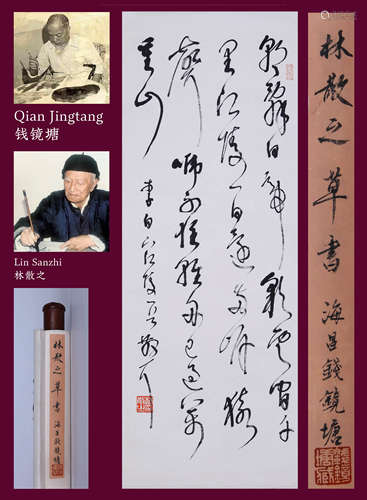 Qian Jingtang
钱镜塘
Lin Sanzhi
林散之
林散之草書 海昌錢鏡塘
朝辭白帝彩雲間千
里江陵一日還兩岸猿
聲啼不住輕舟已過萬
重山
李白下江陵一首 散耳
林散之草書 海昌錢鏡塘